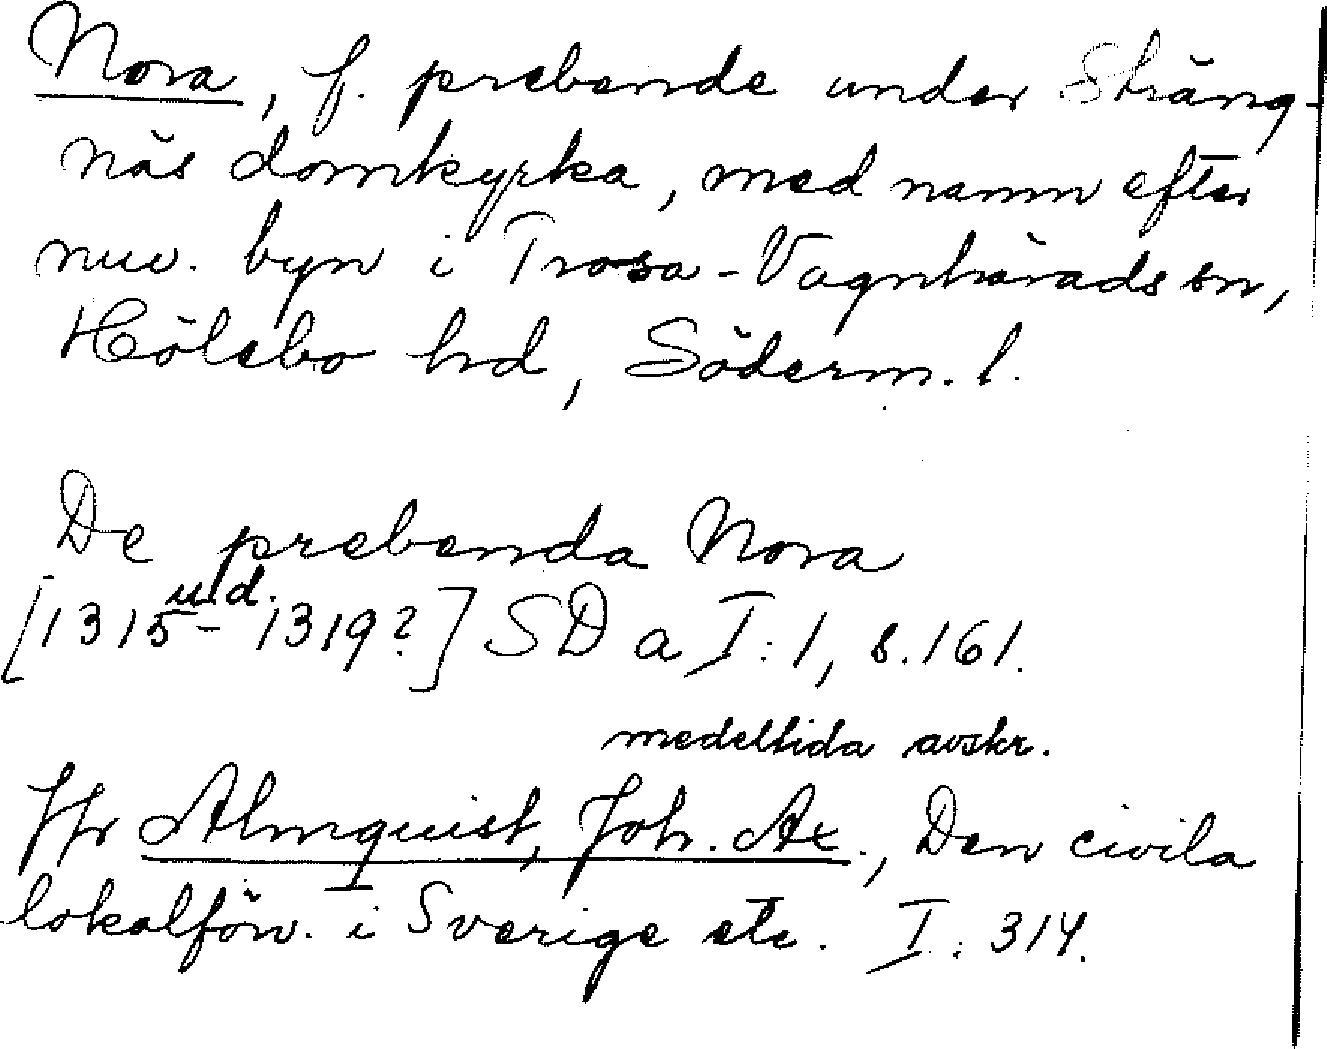 Nora, f. prebende under Sträng-
näs domkyrka, med namn efter
nuv. byn i Trosa-Vagnhärads sn,
Hölebo hd, Söderm. l.
De prebenda Nora
u.d.
[1315-1319?] SD a I:1, s. 161.
medeltida avskr.
Jfr Almquist, Joh. Ax., Den civila
lokalförv. i Sverige etc. I: 314.